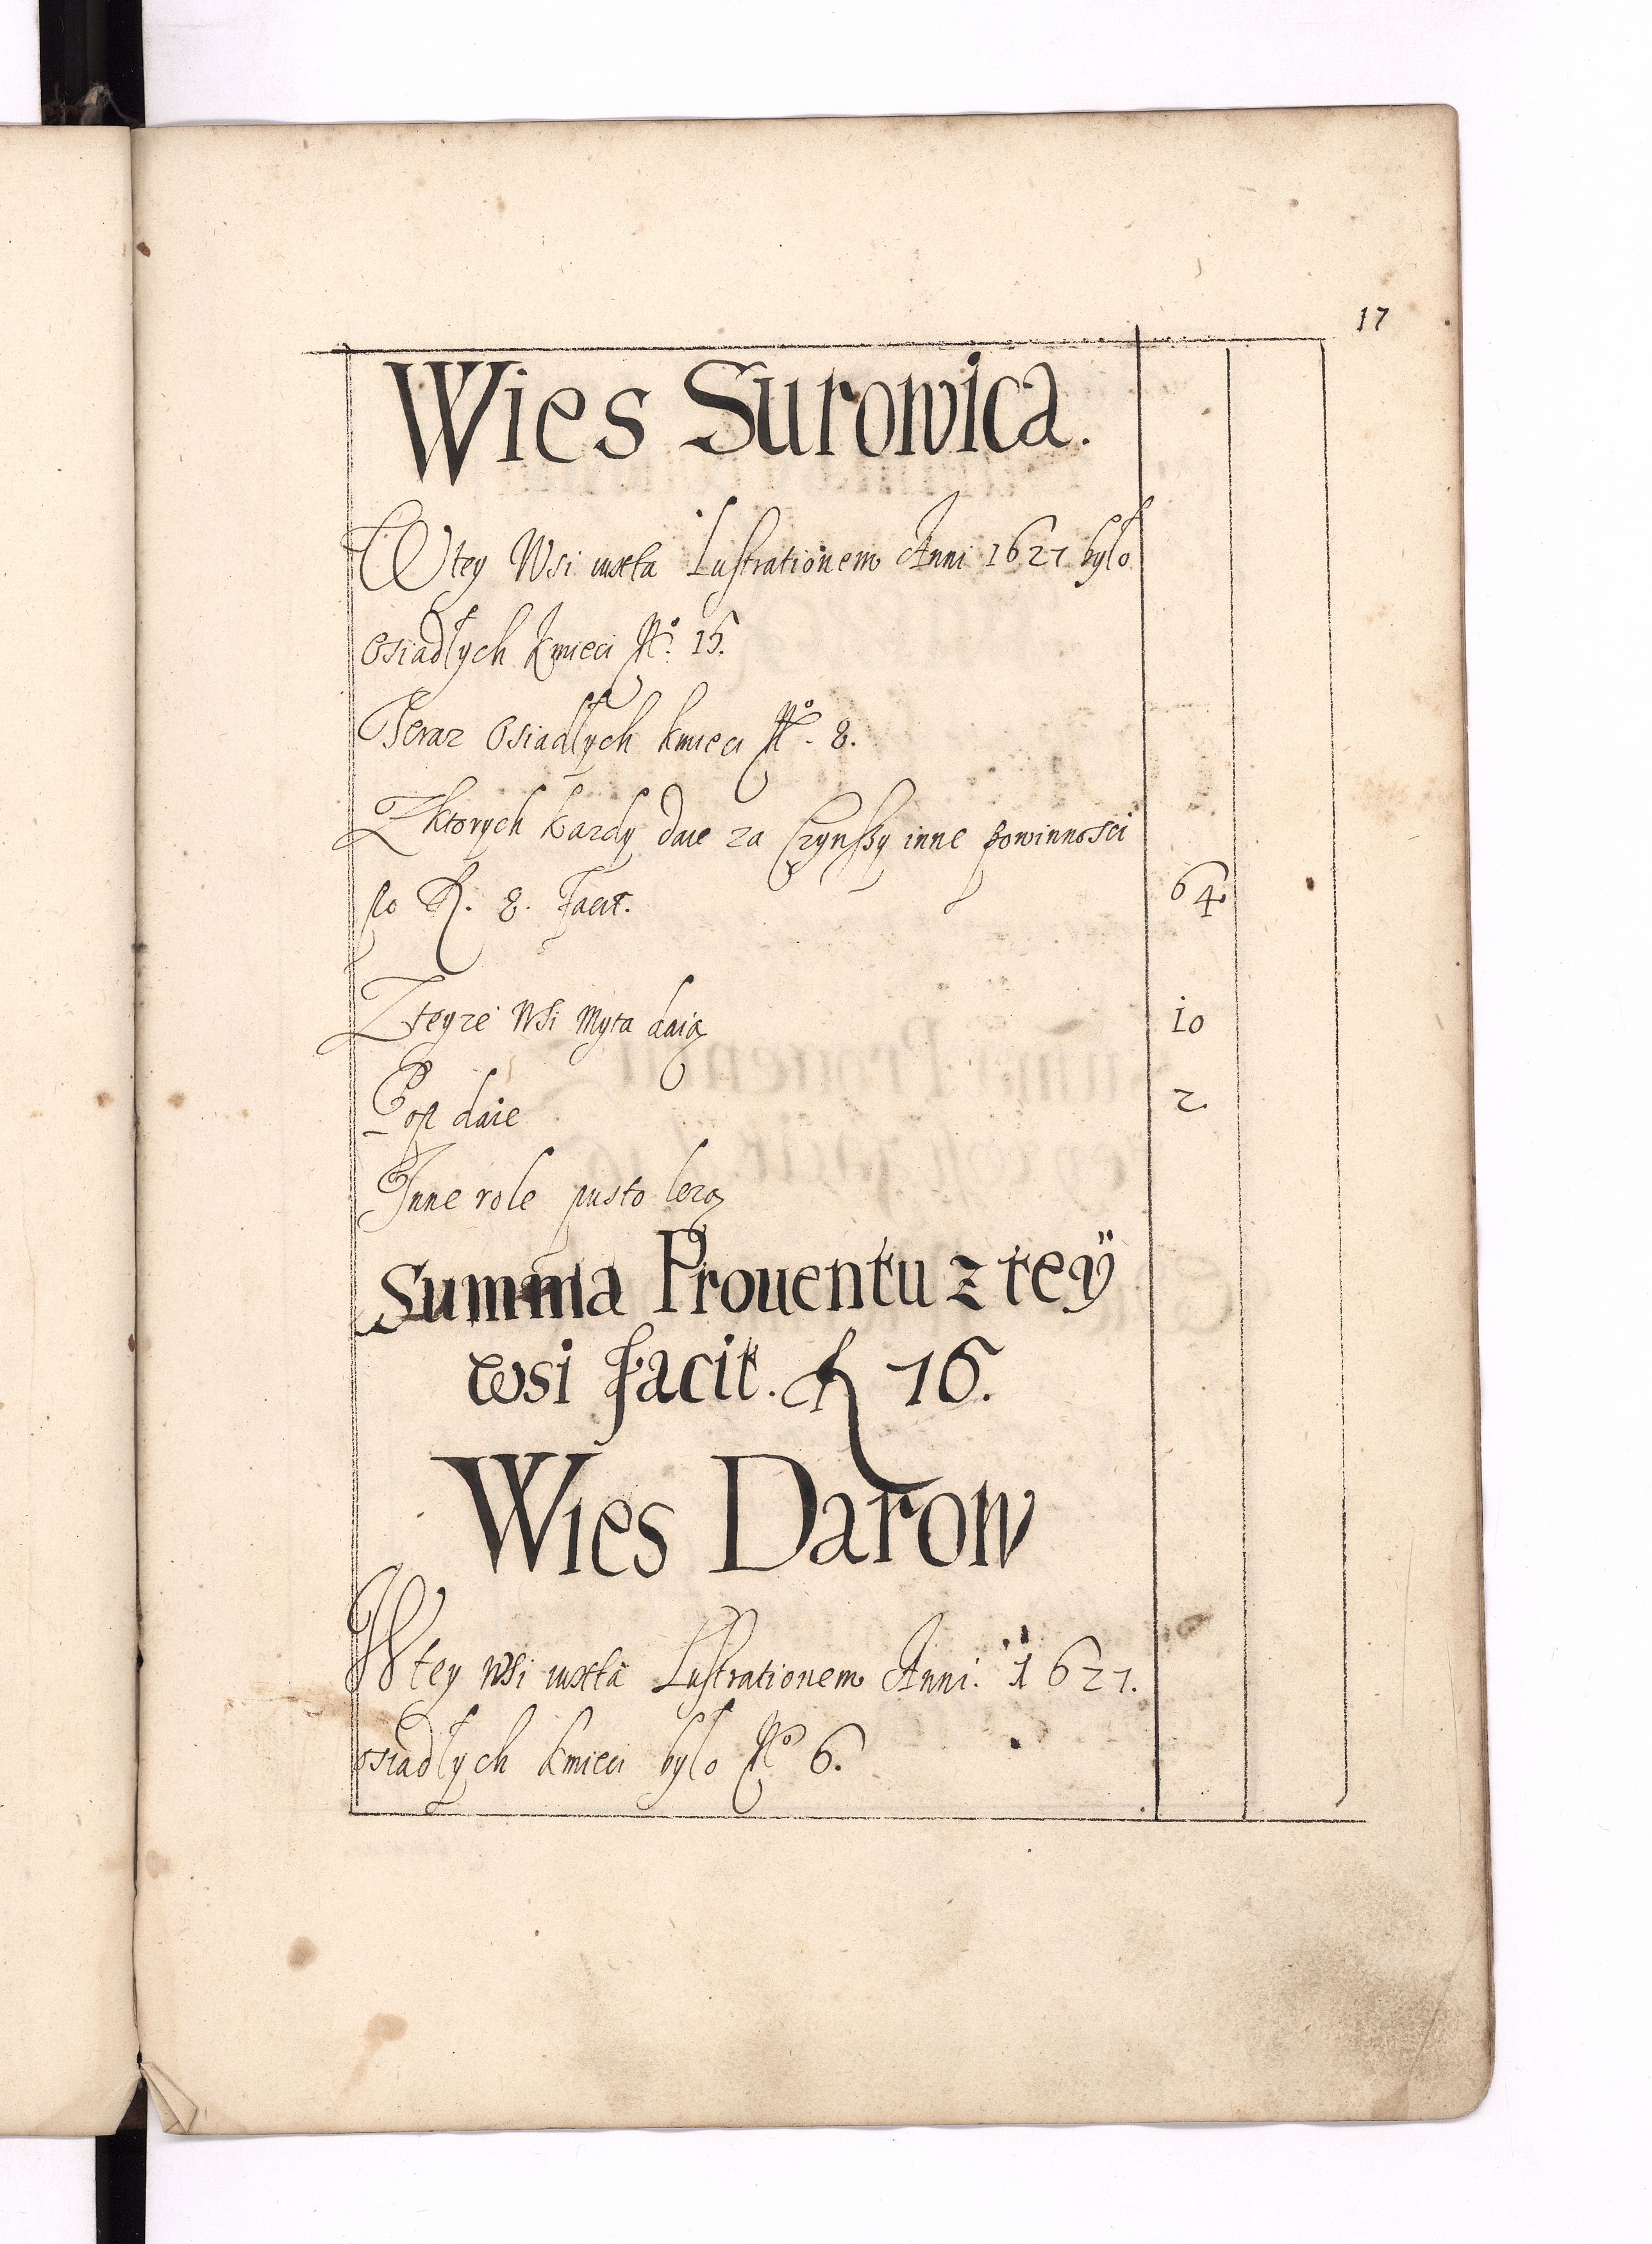 17
Wies Surowica.
W tey Wsi iuxta Lustrationem Anni 1627 bylo
Osiadłych kmieci No. 15.
Teraz Osiadłych kmieci No. 8.
Z ktorych kazdy daie za Czynsz y inne powinnosci
po fl. 8. Facit. 64.
Z teyze Wsi Myta daią 10
Pop daie 2.
Inne role pusto lezą
Summa Prouentu z teÿ
wsi facit. fl 76.
Wies Darow
W tey Wsi iuxta Lustrationem Anni. 1627.
osiadłych kmieci bylo No 6.